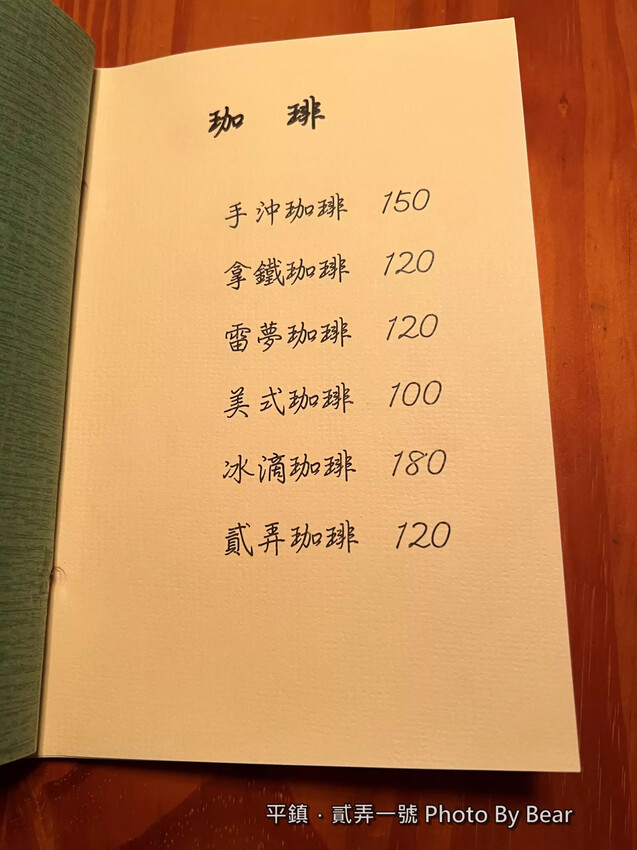 珈琲
手沖珈琲 150
拿鐵珈琲 120
雷夢珈琲 120
美式珈琲 100
冰滴珈琲 180
貳弄珈琲 120
平鎮．貳弄一號 Photo By Bear